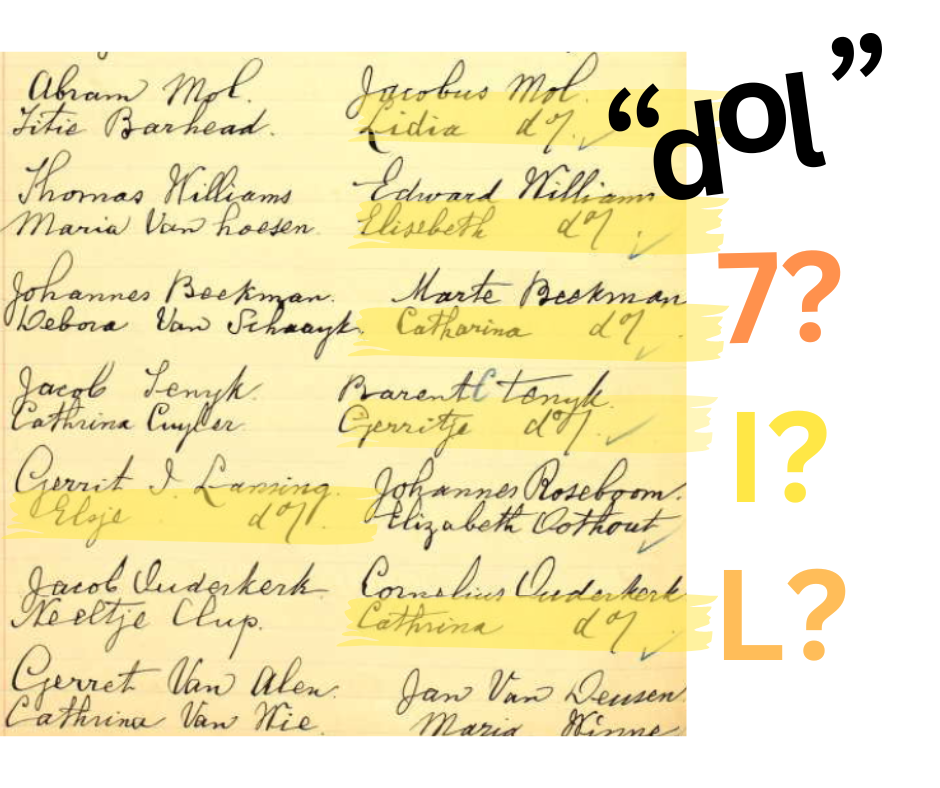 Abram Mol. Jacobus Mol.
Titie Barhead. Lidia do/.
Thomas Williams Edward Williams
Maria Van hoesen. Elisebeth do/.
Johannes Beekman. Marte Beekman
Debora Van Schaayk. Catharina do/.
Jacob Tenyk. Barent C Tenyk.
Cathrina Cuyler. Gerritje do/.
Gerrit I. Lansing. Johannes Roseboom.
Elsje do/. Elizabeth Oothout
Jacob Ouderkerk. Cornelius Ouderkerk
Neeltje Clup. Cathrina do/.
Gerret Van Alen. Jan Van Deusen.
Cathrina Van Wie. Maria Winne
“dol”
7?
I?
L?